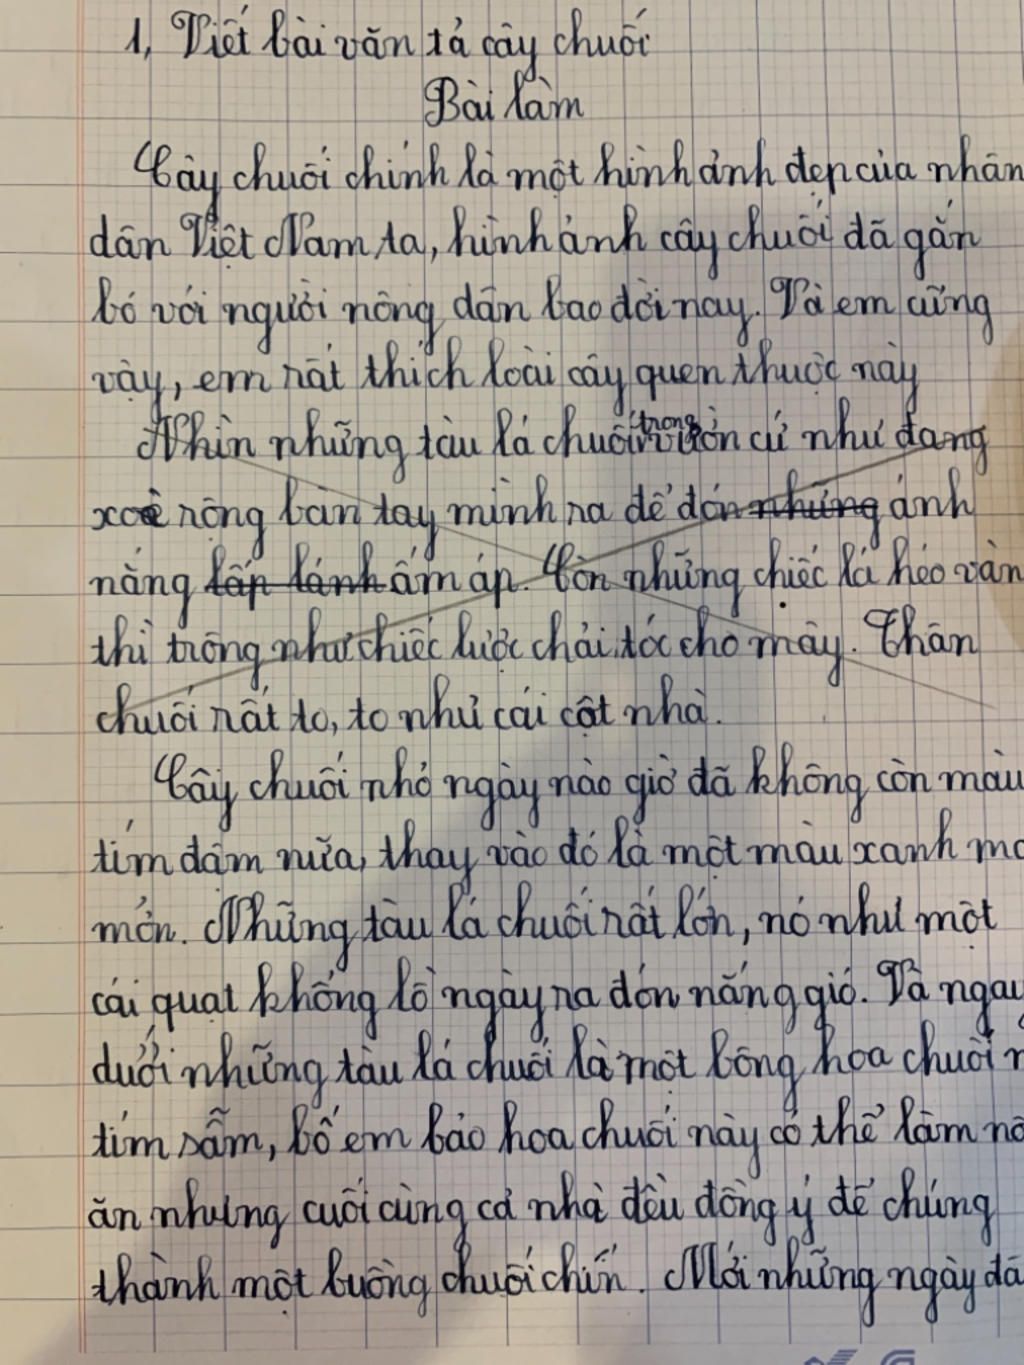 1, Viết bài văn tả cây chuối
Bài làm
Cây chuối chính là một hình ảnh đẹp của nhân
dân Việt Nam ta, hình ảnh cây chuối đã gắn
bó với người nông dân bao đời nay. Và em cũng
vậy, em rất thích loài cây quen thuộc này
Nhìn những tàu lá chuối trong vườn cứ như đang
xoè rộng bàn tay mình ra để đón những ánh
nắng lấp lánh ấm áp. Còn những chiếc lá héo vàn
thì trông như chiếc lược chải tóc cho mây. Thân
chuối rất to, to như cái cột nhà.
Cây chuối nhỏ ngày nào giờ đã không còn màu
tím đậm nữa, thay vào đó là một màu xanh mơ
mởn. Những tàu lá chuối rất lớn, nó như một
cái quạt khổng lồ ngày ra đón nắng gió. Và ngay
dưới những tàu lá chuối là một bông hoa chuối
tím sẫm, bố em bảo hoa chuối này có thể làm
ăn nhưng cuối cùng cả nhà đều đồng ý để chúng
thành một buồng chuối chín. Mới những ngày đã